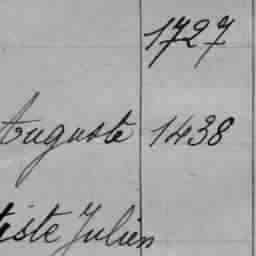 1727
Auguste 1438
tiste Julien